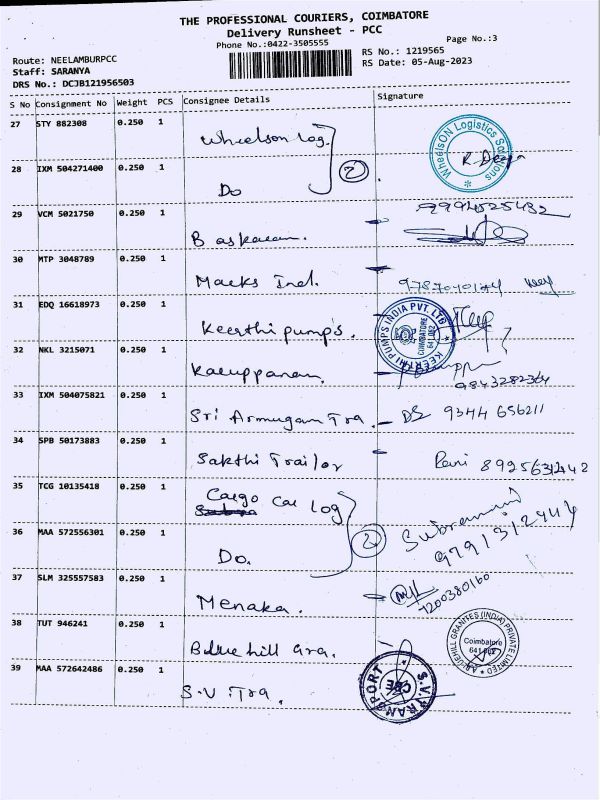 THE PROFESSIONAL COURIERS, COIMBATORE
Delivery Runsheet - PCC
Phone No.:0422-3505555
Page No.:3
Route: NEELAMBURPCC
RS No.: 1219565
Staff: SARANYA
RS Date: 05-Aug-2023
DRS No.: DCJB121956503
S No Consignment No Weight PCS Consignee Details Signature
27 STY 882308 0.250 1 Wheelson Log.
WheelsON Logistics Solutions
28 IXM 504271400 0.250 1 Do 2
R Deepa
29 VCM 5021750 0.250 1 Baskaran.
9994525432
30 MTP 3048789 0.250 1 Macks Ind.
31 EDQ 16618973 0.250 1 Keerthi pump's.
KEERTHI PUMPS INDIA PVT. LTD
COIMBATORE
641 062
32 NKL 3215071 0.250 1 Karuppanan.
9843282364
33 IXM 504075821 0.250 1 Sri Armugam Tra. DS 9344 656211
34 SPB 50173883 0.250 1 Sakthi Trailor
35 TCG 10135418 0.250 1 Cargo Car Log
36 MAA 572556301 0.250 1 Do. 2
9791312444
37 SLM 325557583 0.250 1 Menaka.
7200380160
38 TUT 946241 0.250 1 Blue hill Gra.
GRANITES (INDIA) PRIVATE LIMITED
Coimbatore
39 MAA 572642486 0.250 1 S.V Tra.
S.V. TRANSPORT
CBE